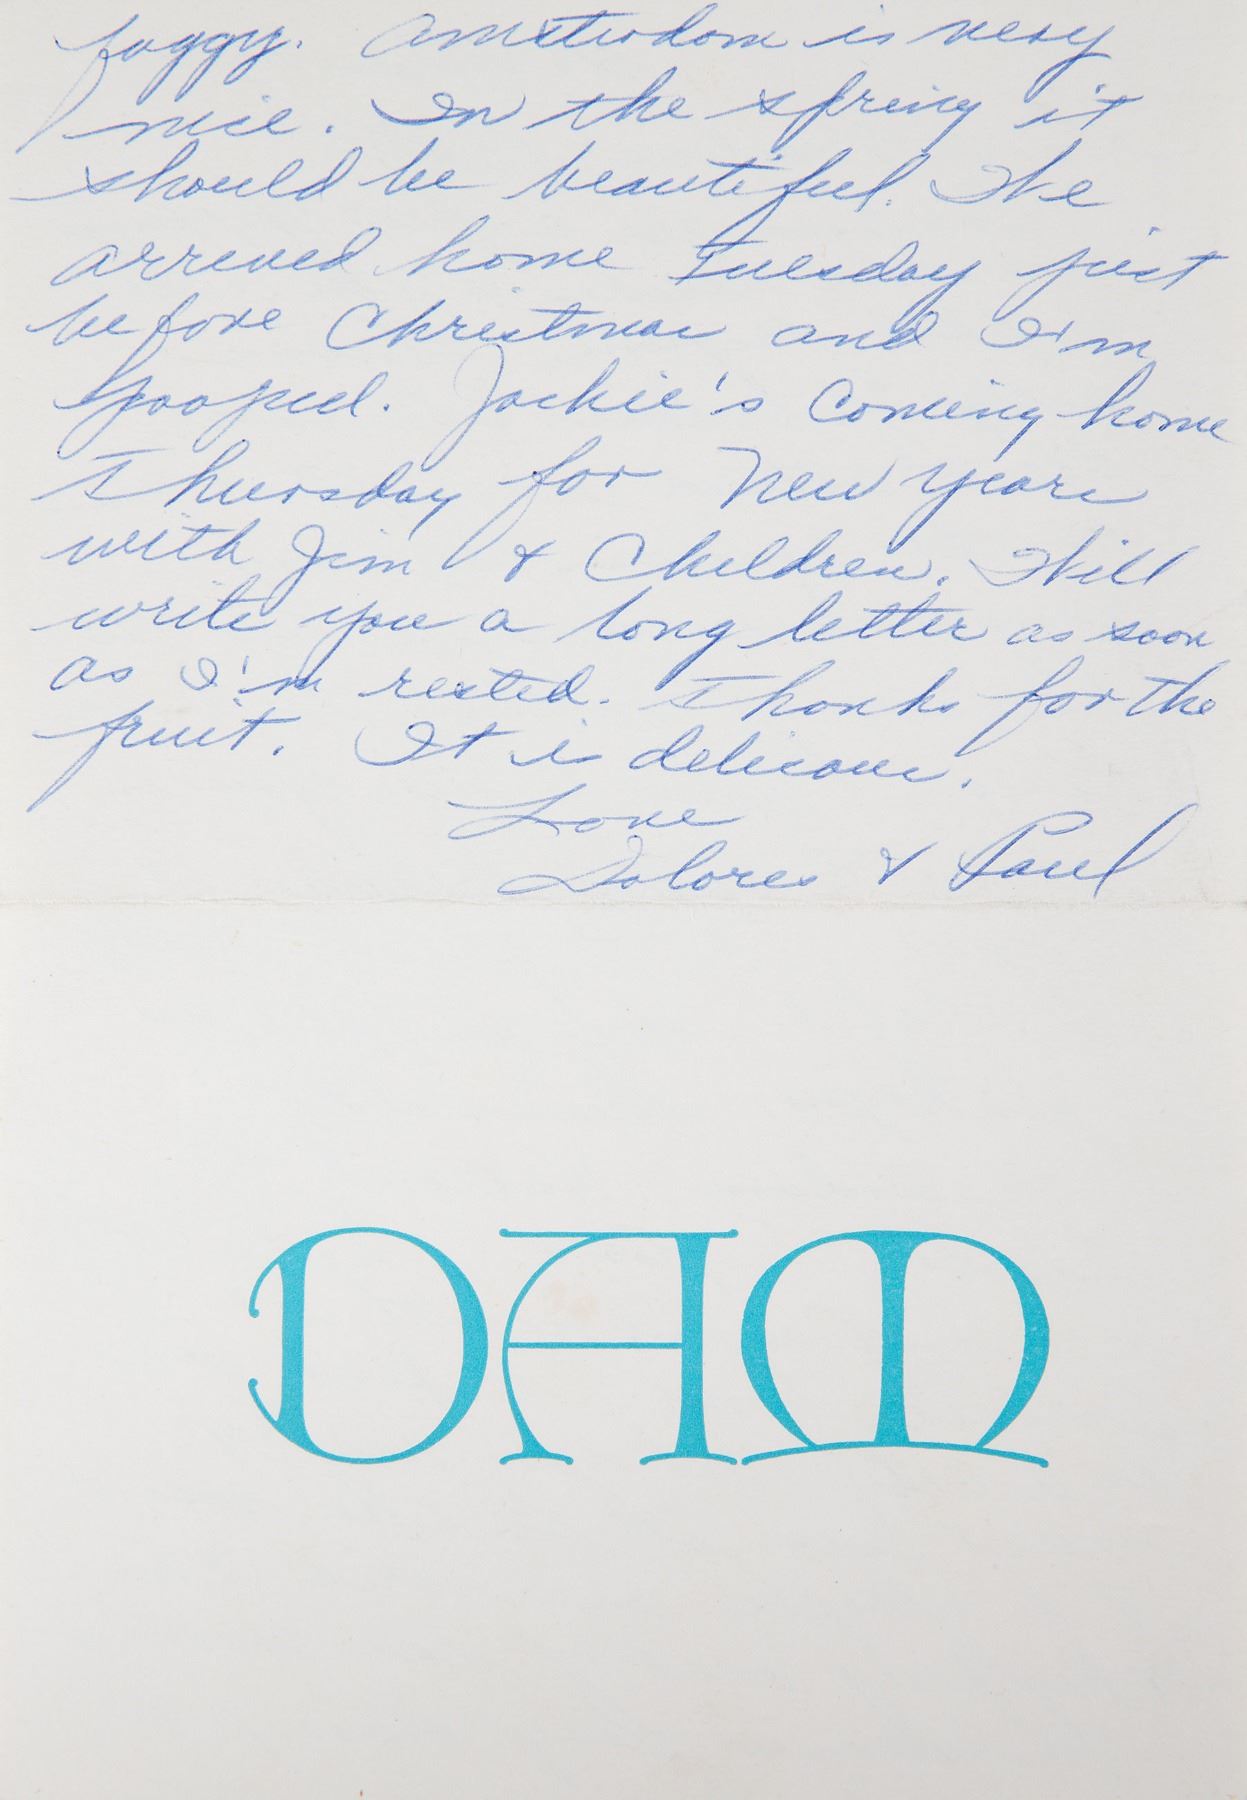 foggy. Amstrodom is very
nice. In the spring it
should be beautiful. We
arrived home Tuesday just
before Christmas and I'm
pooped. Jackie's coming home
Thursday for New Years
with Jim & Children. Will
write you a long letter as soon
as I'm rested. Thanks for the
fruit. It is delicious.
Love
Dolores & Paul
DAM